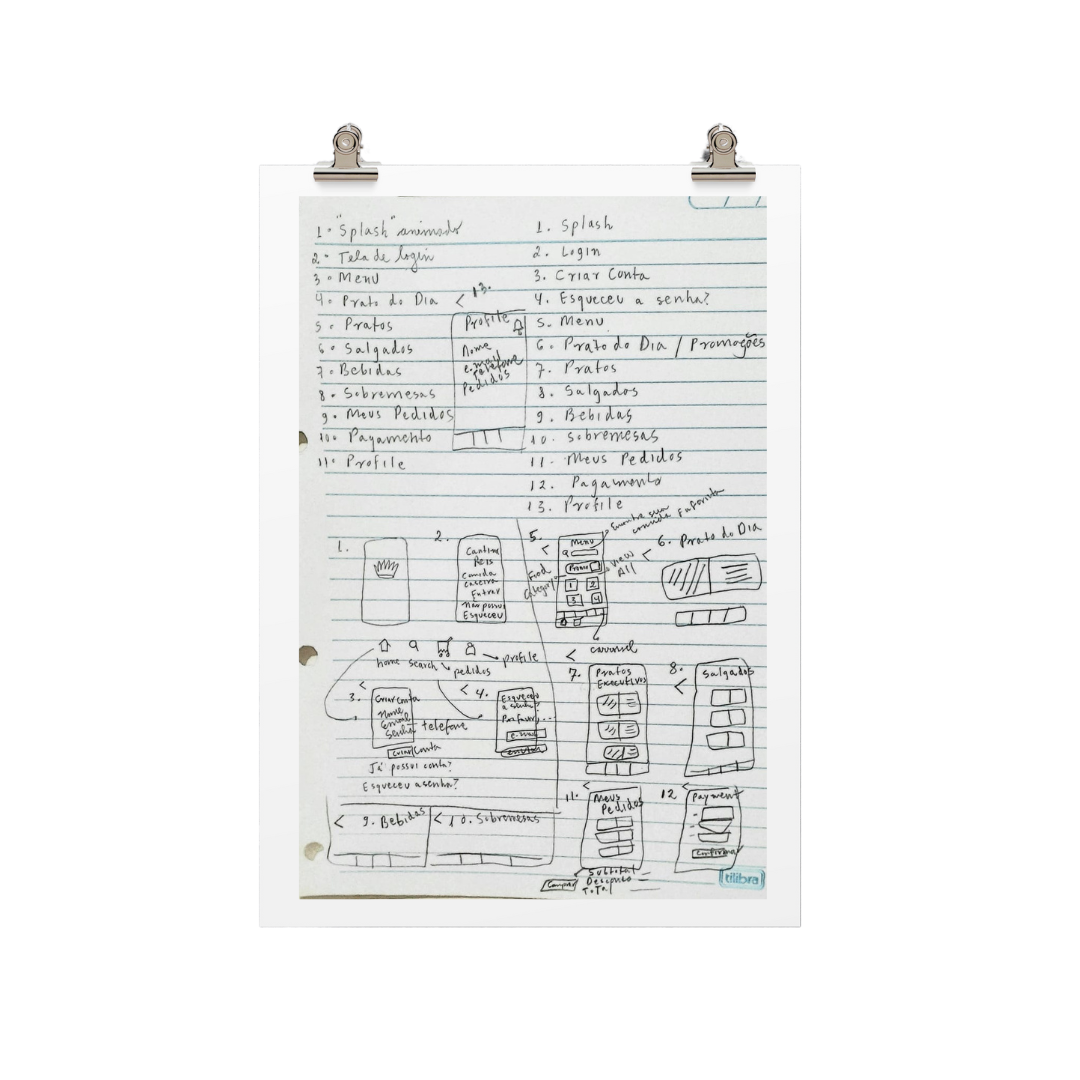 1. "Splash" animado
2. Tela de login
3. Menu
4. Prato do Dia
5. Pratos
6. Salgados
7. Bebidas
8. Sobremesas
9. Meus Pedidos
10. Pagamento
11. Profile
< 13.
Profile
Nome
e-mail
telefone
Pedidos
1. Splash
2. Login
3. Criar Conta
4. Esqueceu a senha?
5. Menu
6. Prato do Dia / Promoções
7. Pratos
8. Salgados
9. Bebidas
10. Sobremesas
11. Meus Pedidos
12. Pagamento
13. Profile
1.
2.
Cantina
Reis
Comida
Caseira
Entrar
Não possui
Esqueceu
5.
<
Menu
Promo
1 2
3 4
Food
Category
View
All
comida Favorita
carousel
< 6. Prato do Dia
home search pedidos profile
< 3.
Criar Conta
Nome
Email
Senha
telefone
Criar Conta
Já possui conta?
Esqueceu a senha?
< 4.
Esqueceu
a senha?
Por favor, ...
e-mail
enviar
<
7.
Pratos
Executivos
8.
<
Salgados
< 9. Bebidas
< 10. Sobremesas
11. <
Meus
Pedidos
Subtotal
Desconto
Total
Comprar
12 <
Payment
Confirmar
tilibra